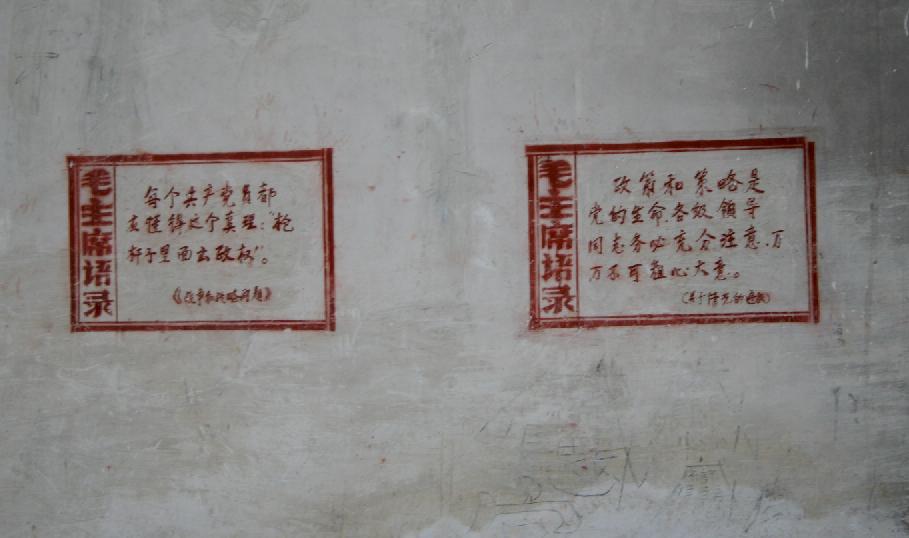 毛主席语录
每个共产党员都
应懂得这个真理："枪
杆子里面出政权"。
《战争和战略问题》
毛主席语录
政策和策略是
党的生命，各级领导
同志务必充分注意，万
万不可粗心大意。
《关于情况的通报》